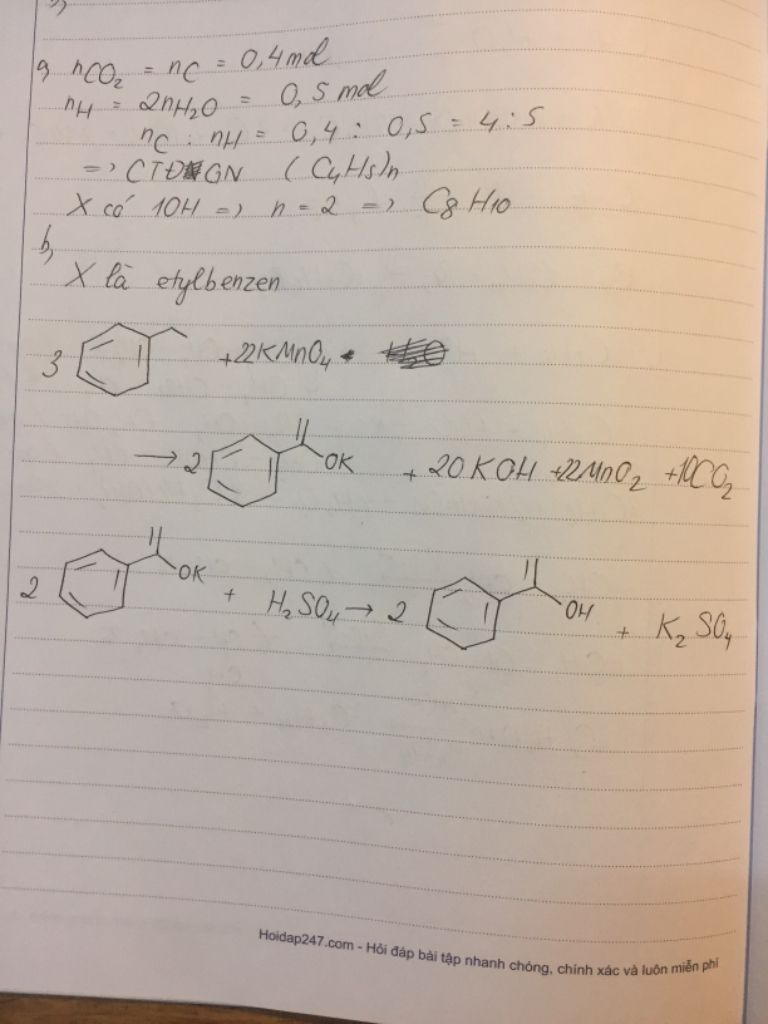 a, nCO2 = nC = 0,4 mol
nH = 2nH2O = 0,5 mol
nC : nH = 0,4 : 0,5 = 4 : 5
=> CTĐGN (C4H5)n
X có 10H => n = 2 => C8H10
b,
X là etylbenzen
3 + 22KMnO4
→ 2 OK + 20KOH + 22MnO2 + 10CO2
2 OK + H2SO4 → 2 OH + K2SO4
Hoidap247.com - Hỏi đáp bài tập nhanh chóng, chính xác và luôn miễn phí